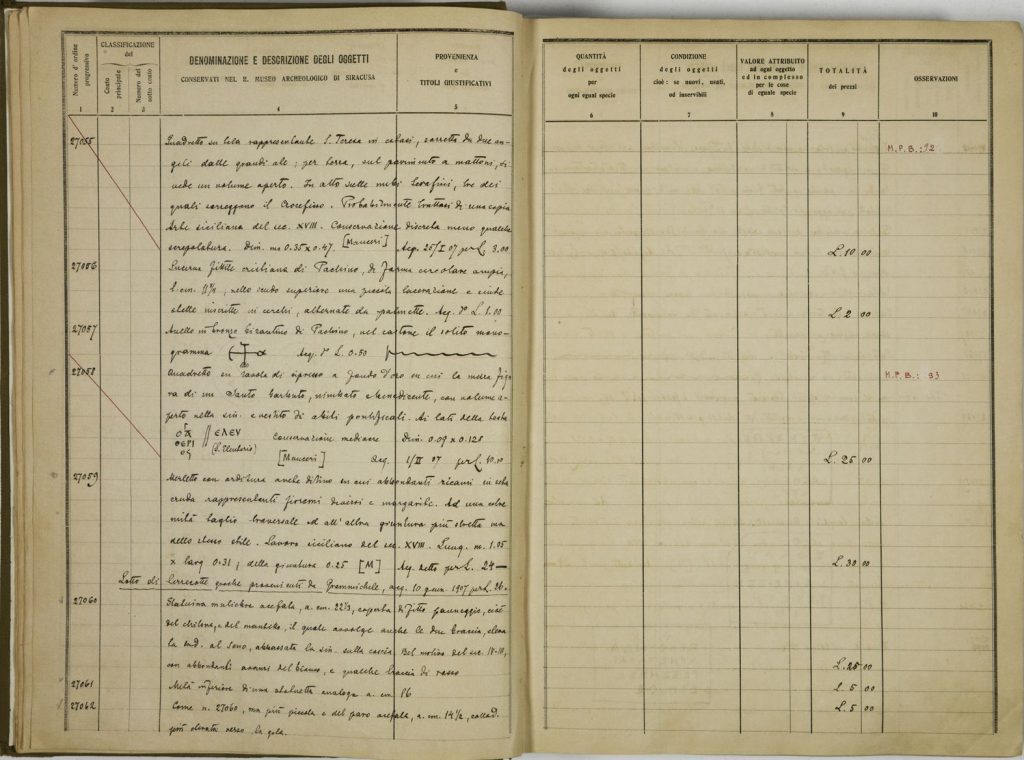 Numero d'ordine progressivo
CLASSIFICAZIONE
del
Conto principale
Numero del sotto conto
DENOMINAZIONE E DESCRIZIONE DEGLI OGGETTI
CONSERVATI NEL R. MUSEO ARCHEOLOGICO DI SIRACUSA
PROVENIENZA
e
TITOLI GIUSTIFICATIVI
1 2 3 4 5
QUANTITÀ
degli oggetti
per
ogni egual specie
CONDIZIONE
degli oggetti
cioè: se nuovi, usati,
od inservibili
VALORE ATTRIBUITO
ad ogni oggetto
ed in complesso
per le cose
di eguale specie
TOTALITÀ
dei prezzi
OSSERVAZIONI
6 7 8 9 10
27055 Quadretto su tela rappresentante S. Teresa in estasi, sorretta da due an-
geli dalle grandi ale; per terra, sul pavimento a mattoni, si
vede un volume aperto. In alto sulle nubi Serafini, tre dei
quali sorreggono il Crocefisso. Probabilmente trattasi di una copia
Arte siciliana del sec. XVIII. Conservazione discreta meno qualche
screpolatura. Dim. m. 0.35 x 0.47. [Mauceri] Acq. 25/I 07 per L. 3.00
M.P.B.: 92
L. 10 00
27056 Lucerna fittile cristiana di Pachino, di forma circolare ampia,
nello scudo superiore una piccola lacerazione e
stelle inscritte in cerchi, alternate da palmette. Acq. L. 1.00
L. 2 00
27057 Anello in bronzo bizantino di Pachino, nel castone il solito mono-
gramma Acq. L. 0.50
27058 Quadretto in tavola di cipresso a fondo d'oro in cui la mezza figu
ra di un Santo barbuto, nimbato e benedicente, con volume a-
perto nella sin. e vestito di abiti pontificali. Ai lati della testa
ΕΛΕΥ
ΘΕΡΙ
ΟϹ
(S. Eleuterio) Conservazione mediocre Dim. 0.09 x 0.128
[Mauceri] Acq. 1/II 07 per L. 10.10
M.P.B.: 93
L. 25 00
27059 Merletto con orditura anche di lino in cui abbondanti ricami in seta
cruda rappresentanti fiorami diversi e margarite. Ad una estre
mità taglio traversale ed all'altra giuntura più stretta ma
dello stesso stile. Lavoro siciliano del sec. XVIII. Lung. m. 1.05
x larg. 0.31; della giuntura 0.25 [M] Acq. detto per L. 24—
L. 30 00
Lotto di terrecotte greche provenienti da Grammichele, acq. 10 genn. 1907 per L. 26.
27060 Statuina muliebre acefala, a. cm. 22½, coperta di fitto panneggio, cioè
del chitone, e del mantello, il quale avvolge anche le due braccia,
la md. al seno, abbassata la sin. sulla coscia. Bel motivo del sec. IV-III,
con abbondanti avanzi del bianco, e qualche traccia di rosso
L. 25 00
27061 Metà inferiore di una statuetta analoga a. cm. 16
L. 5 00
27062 Come n. 27060, ma più piccola e del pari acefala, a. cm. 14½,
più elevata verso la gola.
L. 5 00